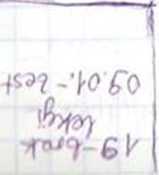 19-brak
lekcji
09.01.-test